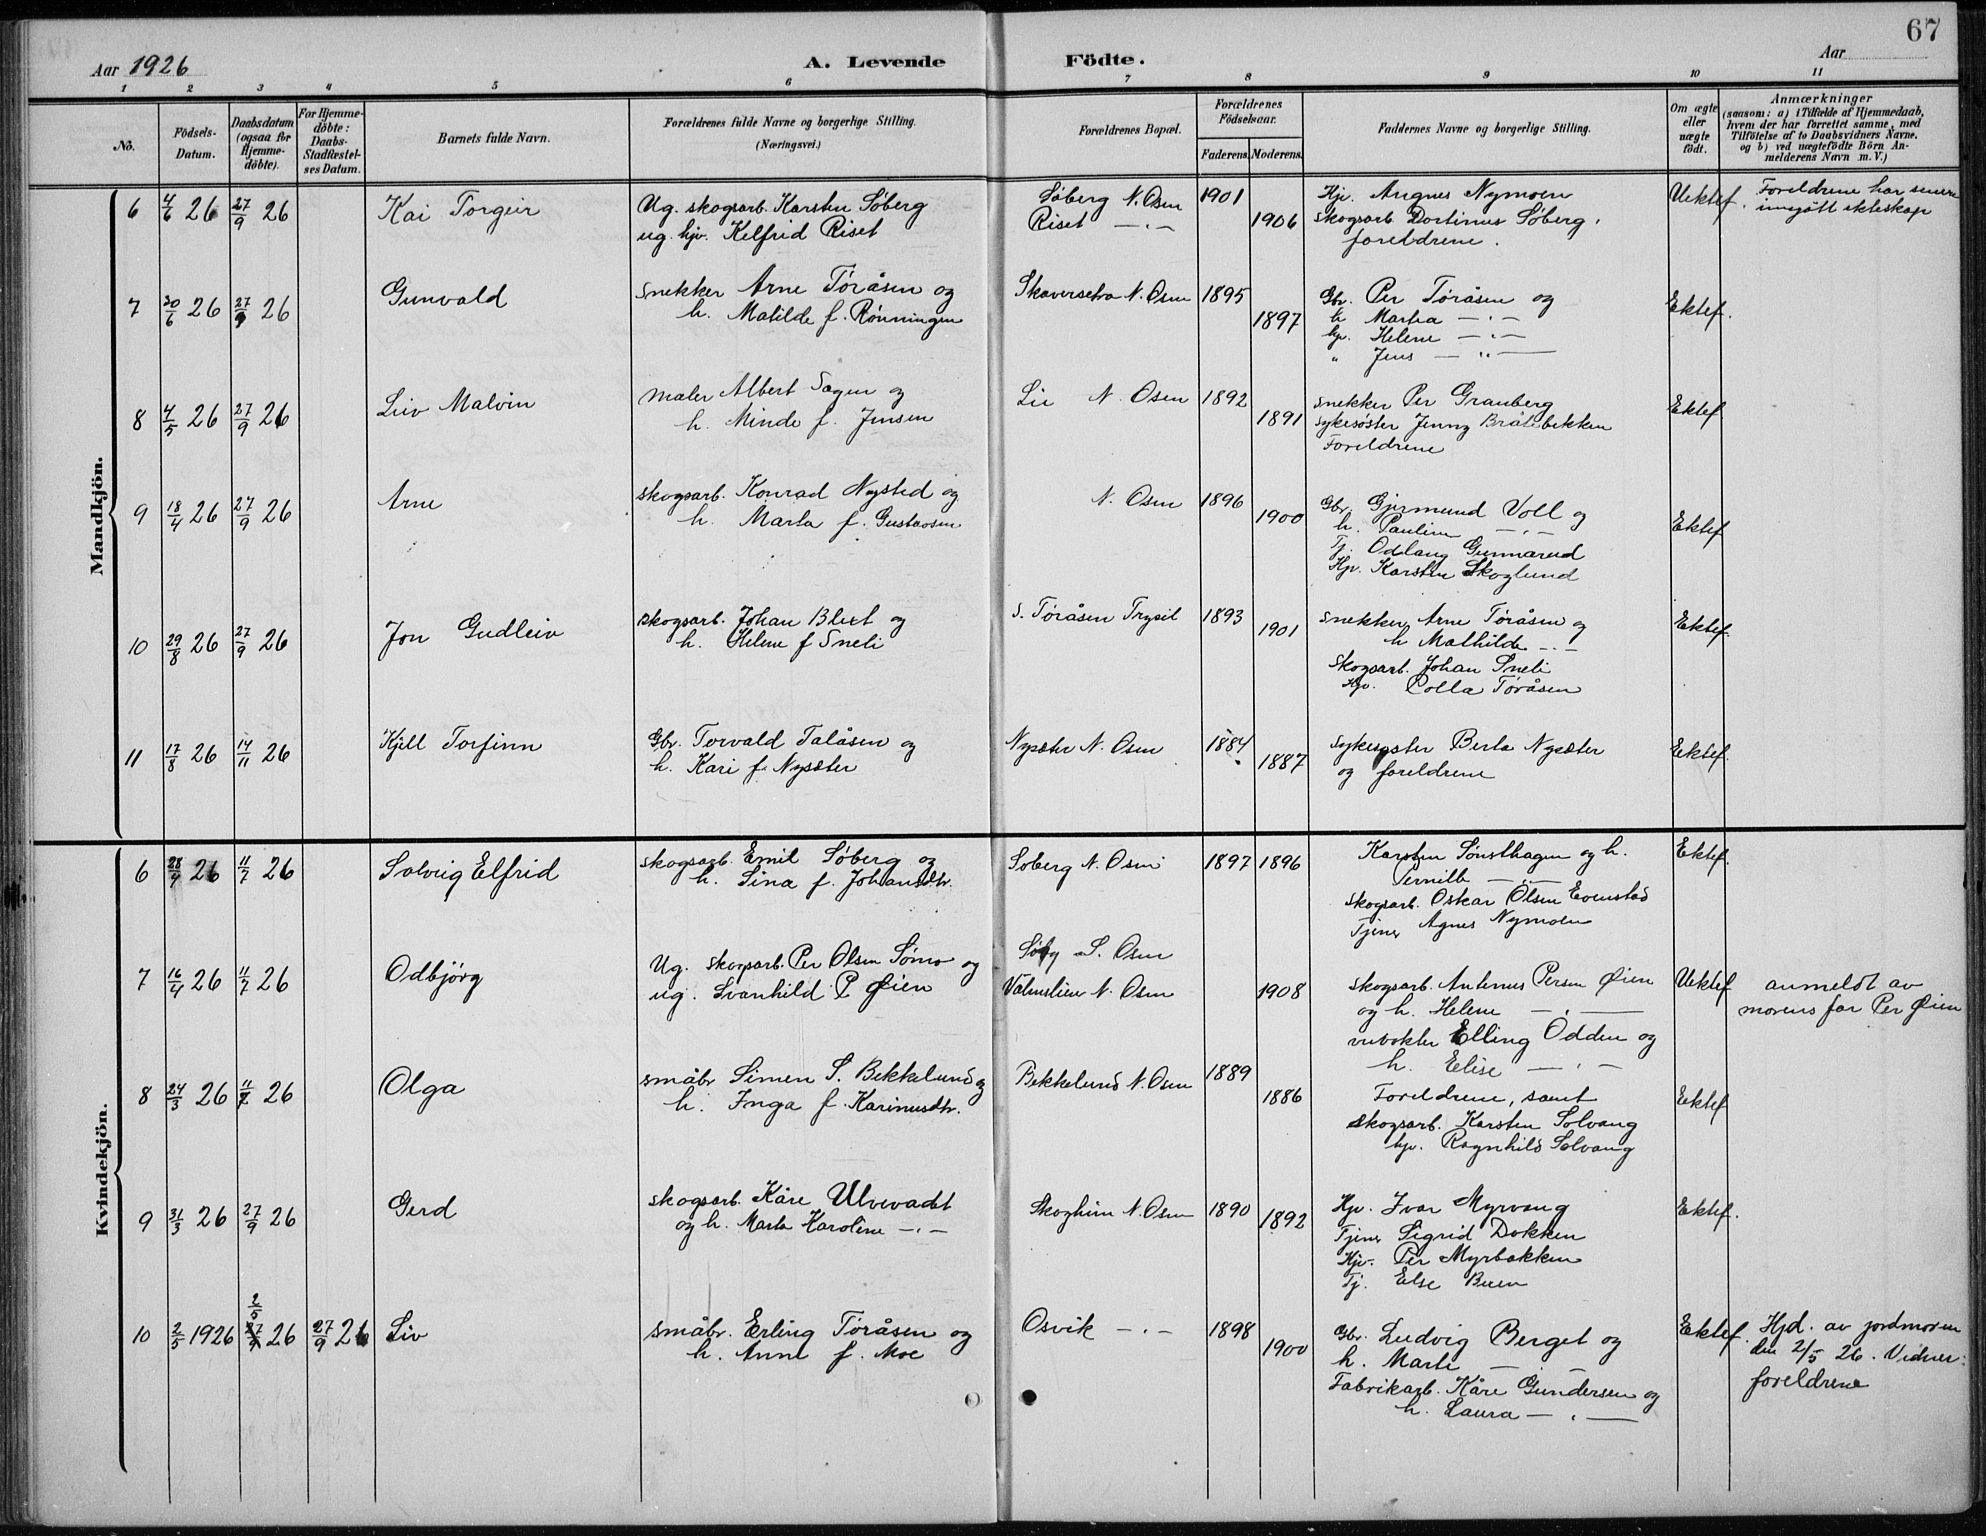 67
Aar 1926
A. Levende
Födte.
Aar
1 2 3 4 5 6 7 8 9 10 11
No.
Födsels-Datum.
Daabsdatum (ogsaa for Hjemme-döbte).
For Hjemme-döbte: Daabs-Stadfæstel-ses Datum.
Barnets fulde Navn.
Forældrenes fulde Navne og borgerlige Stilling. (Næringsvei.)
Forældrenes Bopæl.
Forældrenes Födselsaar.
Faderens. Moderens.
Faddernes Navne og borgerlige Stilling.
Om ægte eller uægte födt.
Anmærkninger
(saasom: a) i Tilfælde af Hjemmedaab, hvem der har forrettet samme, med Tilföielse af to Daabsvidners Navne. og b) ved uægtefödte Börn Anmelderens Navn m. V.)
Mandkjön.
6 4/6 26 27/9 26 Kai Torgeir
Ug. skogsarb. Karsten Søberg
ug. hjv. Kelfrid Riset
Søberg N. Osen
Riset —"—
1901 1906
Hjv. Angnes Nymoen
skogsarb. Dortinus Søberg.
foreldrene.
Uektef.
Foreldrene har senere
inngått ekteskap
7 20/6 26 27/9 26 Gunvald
Snekker Arne Tøråsen og
h. Matilde f. Rønningen
Skaversetra N. Osen 1895 1897
Gbr. Per Tøråsen og
h Martha —"—
hjv. Helene —"—
" Jens —"—
Ektef.
8 4/5 26 27/9 26 Leiv Malvin
maler Albert Sagen og
h. Minda f. Jensen
Lie N. Osen 1892 1891
snekker Per Granberg
sykesøster Jenny Bråtebekken
Foreldrene
Ektef
9 18/4 26 27/9 26 Arne
skogsarb. Konrad Nysted og
h. Marta f. Gustavsen
N. Osen 1896 1900
Gbr. Gjermund Voll og
h. Pauline —"—
Tj. Odlaug Gunnarud
Hjv. Karsten Skoglund
Ektef
10 29/8 26 27/9 26 Jon Gudleiv
skogsarb. Johan Blext og
h. Helene f Sneli
S. Tøråsen Trysil 1893 1901
Snekker Arne Tøråsen og
h Mathilde —"—
Skogsarb. Johan Sneli
Hjv. Polla Tøråsen
Ektef.
11 17/8 26 14/11 26 Kjell Torfinn
Gbr. Torvald Talåsen og
h. Kari f. Nysæter
Nysæter N. Osen 1884 1887
Sykesøster Berta Nysæter
og foreldrene
Eektef.
Kvindekjön.
6 28/4 26 11/7 26 Solveig Elfrid
skogsarb. Emil Søberg og
h. Sina f. Johansdtr.
Soberg N. Osen 1897 1896
Karsten Sønsthagen og h.
Pernille —"—
skogsarb. Oskar Olsen Evenstad
Tjener Agnes Nymoen
Ektef.
7 16/4 26 11/7 26 Odbjørg
Ug. skogsarb. Per Olsen Sømo og
ug. Svanhild P Øien
S. Osen
Valmslien N. Osen
1908
skogsarb. Antinus Persen Øien
og h. Helene —"—
vebokter Elling Odden og
h. Elise —"—
Uektef
anmeldt av
morens far Per Øien
8 24/3 26 11/7 26 Olga
småbr Simen S. Bekkelund og
h. Inga f. Karinusdtr.
Bekkelund N. Osen 1889 1886
Foreldrene, samt
skogsarb. Karsten Solvang
hjv. Ragnhild Solvang
Eektef
9 31/3 26 27/9 26 Gerd
skogsarb. Kåre Ulvevadt
og h. Marta Karoline —"—
Skogheim N. Osen 1890 1892
Hjv. Ivar Myrvang
Tjener Sigrid Dokken
Hjv. Per Myrbakken
Tj. Else Buen
Ektef.
10 2/5 1926 2/5 27/9 26 27/9 26 Liv
småbr. Erling Tøråsen og
h. Anne f. Moe
Osvik —"— 1898 1900
Gbr. Ludvig Berget og
h. Marte —"—
Fabrikarb. Kåre Gundersen og
h. Laura —"—
Ektef.
Hjd. av jordmoren
den 2/5 26. Vidner:
foreldrene